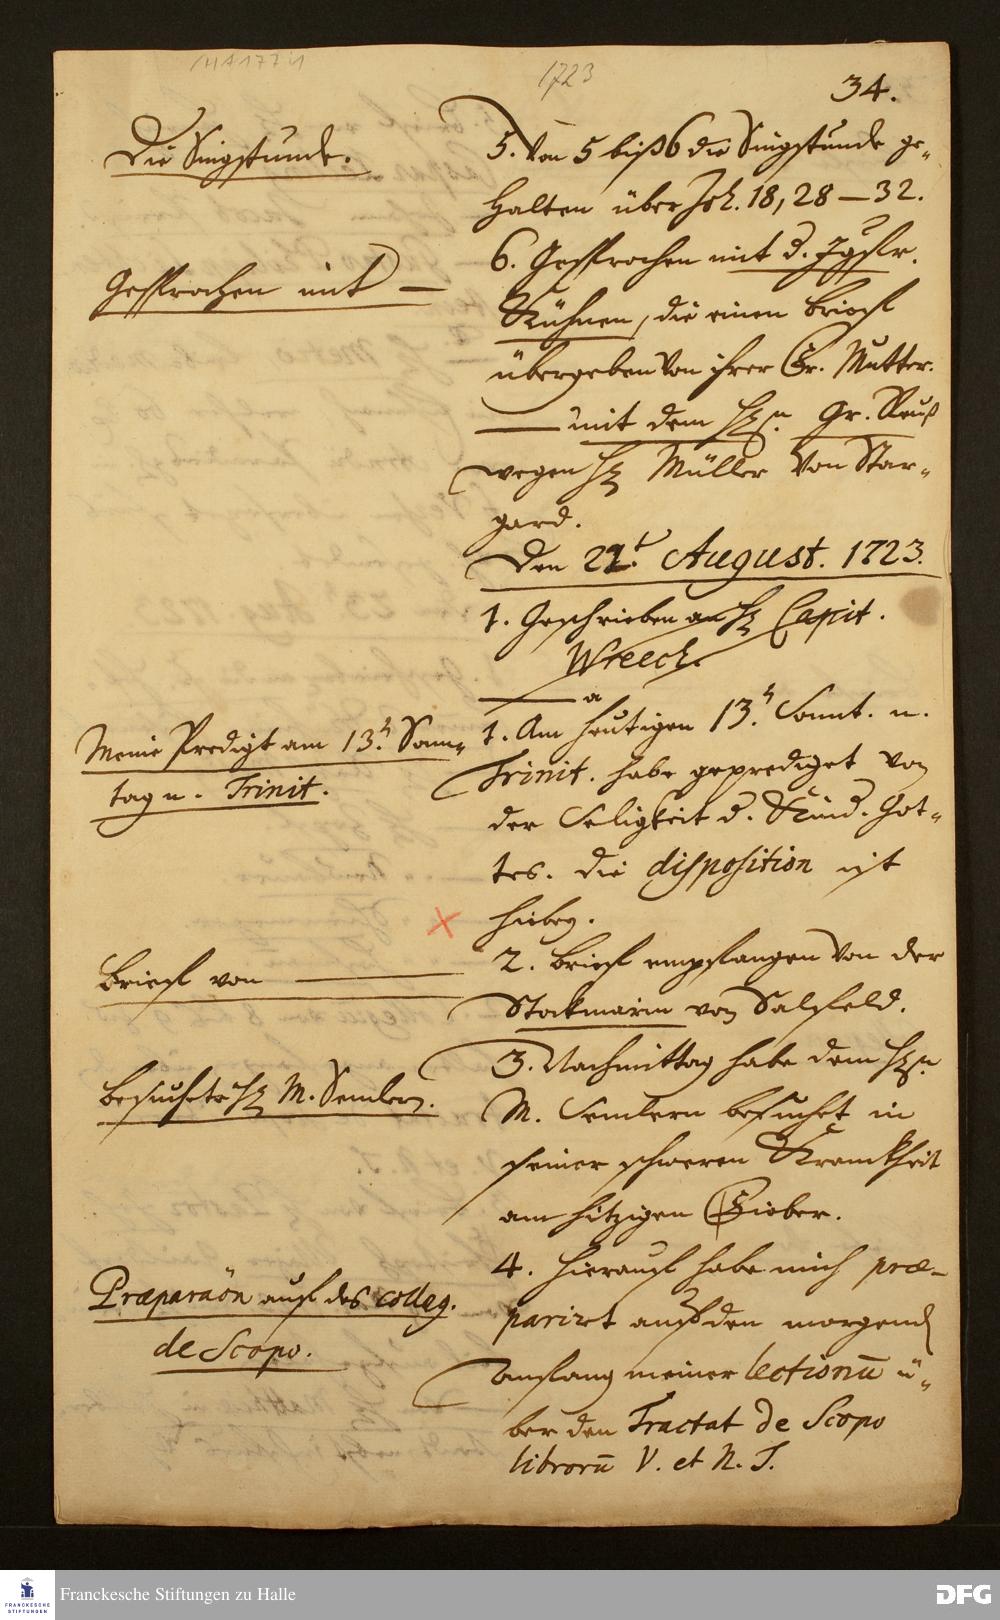 1723
34.
Die Singstunde.
5. Von 5 biß 6 die Singstunde ge-
halten über Joh. 18, 28 — 32.
Gesprochen mit —
6. Gesprochen mit d. Jgfr.
Kühnen, die einen Brieff
übergeben von ihrer Fr. Mutter.
— mit dem Hn. Gr. Reuß
wegen H. Müller von Star-
gard.
Den 22.t August. 1723.
1. Geschrieben an H. Capit.
Wreech.
Meine Predigt am 13.t Sonn-
tag n. Trinit.
1. Am heutigen 13.t Sonnt. n.
Trinit. habe geprediget von
der Seligkeit d. Kind. Got-
tes. die disposition ist
hiebey.
Brieff von —
2. Brieff empfangen von der
Stockmarin von Salfeld.
Besuchete H. M. Semlern.
3. Nachmittag habe dem Hn.
M. Semlern besuchet in
seiner schweren Kranckheit
am hitzigen Fieber.
Præparaōn auff das colleg.
de Scopo.
4. Hierauff habe mich præ-
parirt auff den morgend
anfang meiner lectionū ü-
ber den Tractat de Scopo
librorū V. et N. T.
Franckesche Stiftungen zu Halle
FRANCKESCHE
STIFTUNGEN
DFG